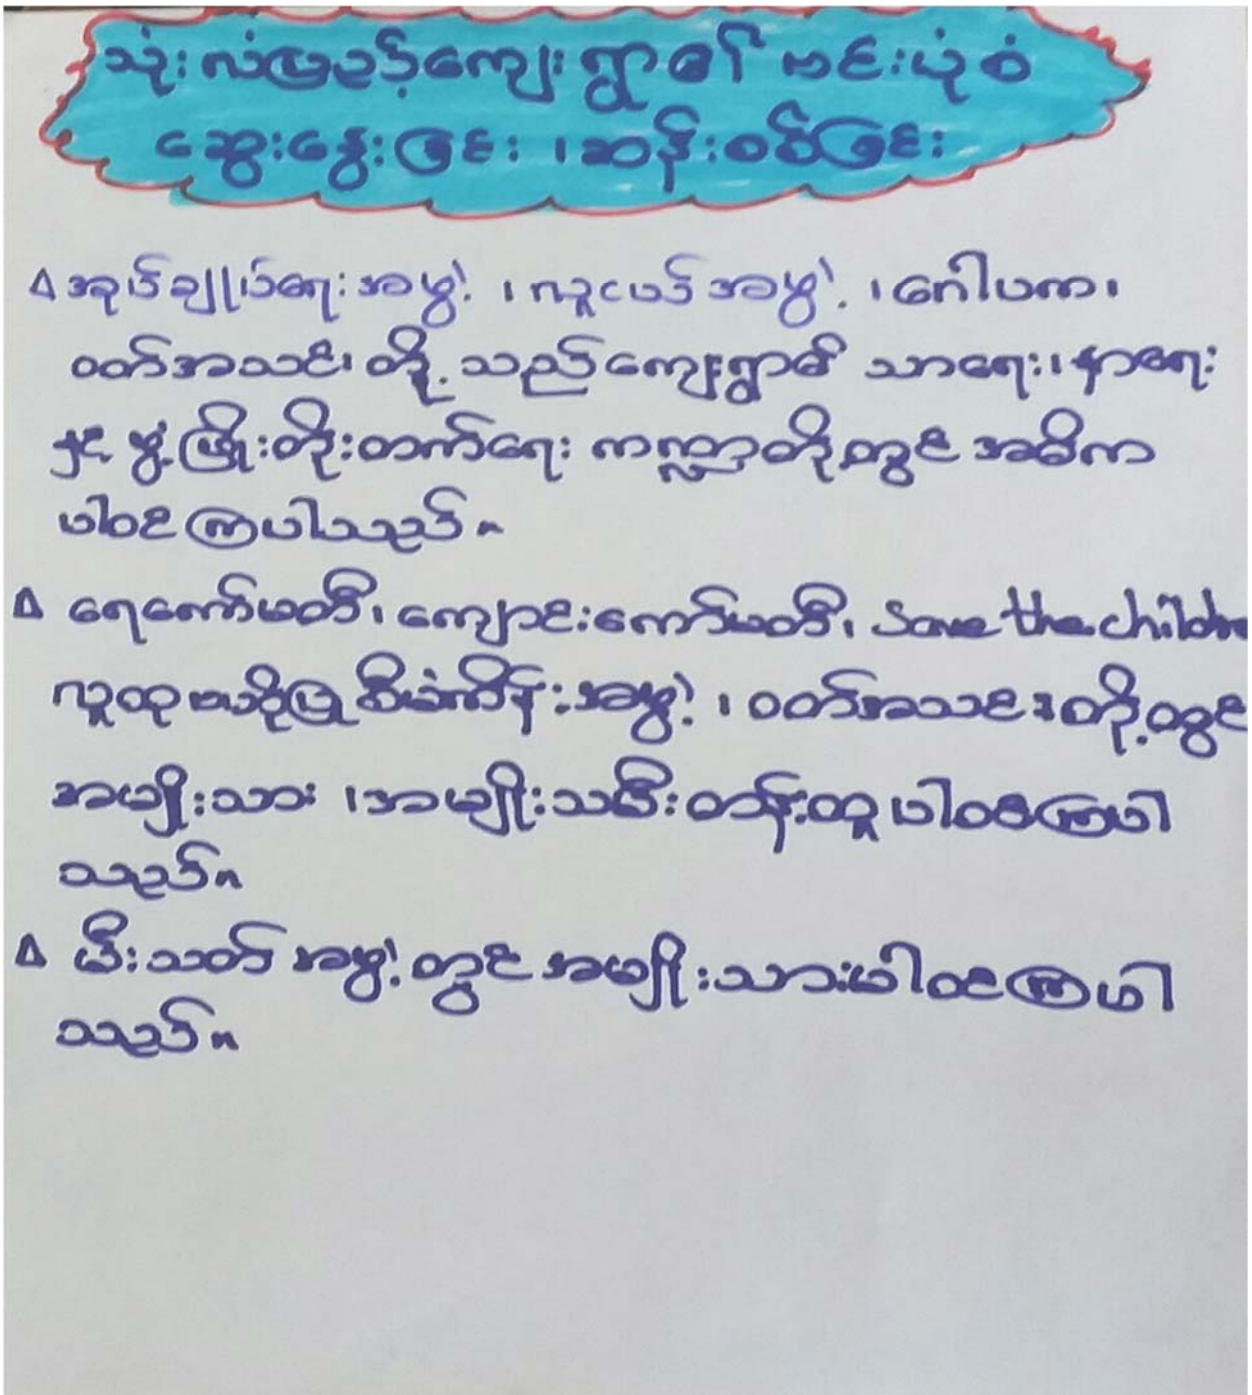 သုံးလံမြည့်ကျေးရွာ၏ ဗင်းပုံစံ
ဆွေးနွေးခြင်း ၊ဆန်းစစ်ခြင်း
အုပ်ချုပ်ရေးအဖွဲ့ ၊လူငယ်အဖွဲ့ ၊ဂေါပက၊
ဝတ်အသင်း တို့ သည်ကျေးရွာ၏ သာရေး၊နာရေး
နှင့် ဖွံ့ဖြိုးတိုးတက်ရေး ကဏ္ဍတို့တွင် အဓိက
ပါဝင်ကြပါသည်။
ရေကော်မတီ၊ ကျောင်းကော်မတီ၊ Save the childre
လူထုဗဟိုပြုစီမံကိန်းအဖွဲ့ ၊ဝတ်အသင်းတို့တွင်
အမျိုးသား ၊အမျိုးသမီးတန်းတူ ပါဝင်ကြပါ
သည်။
မီးသတ်အဖွဲ့တွင် အမျိုးသားပါဝင်ကြပါ
သည်။